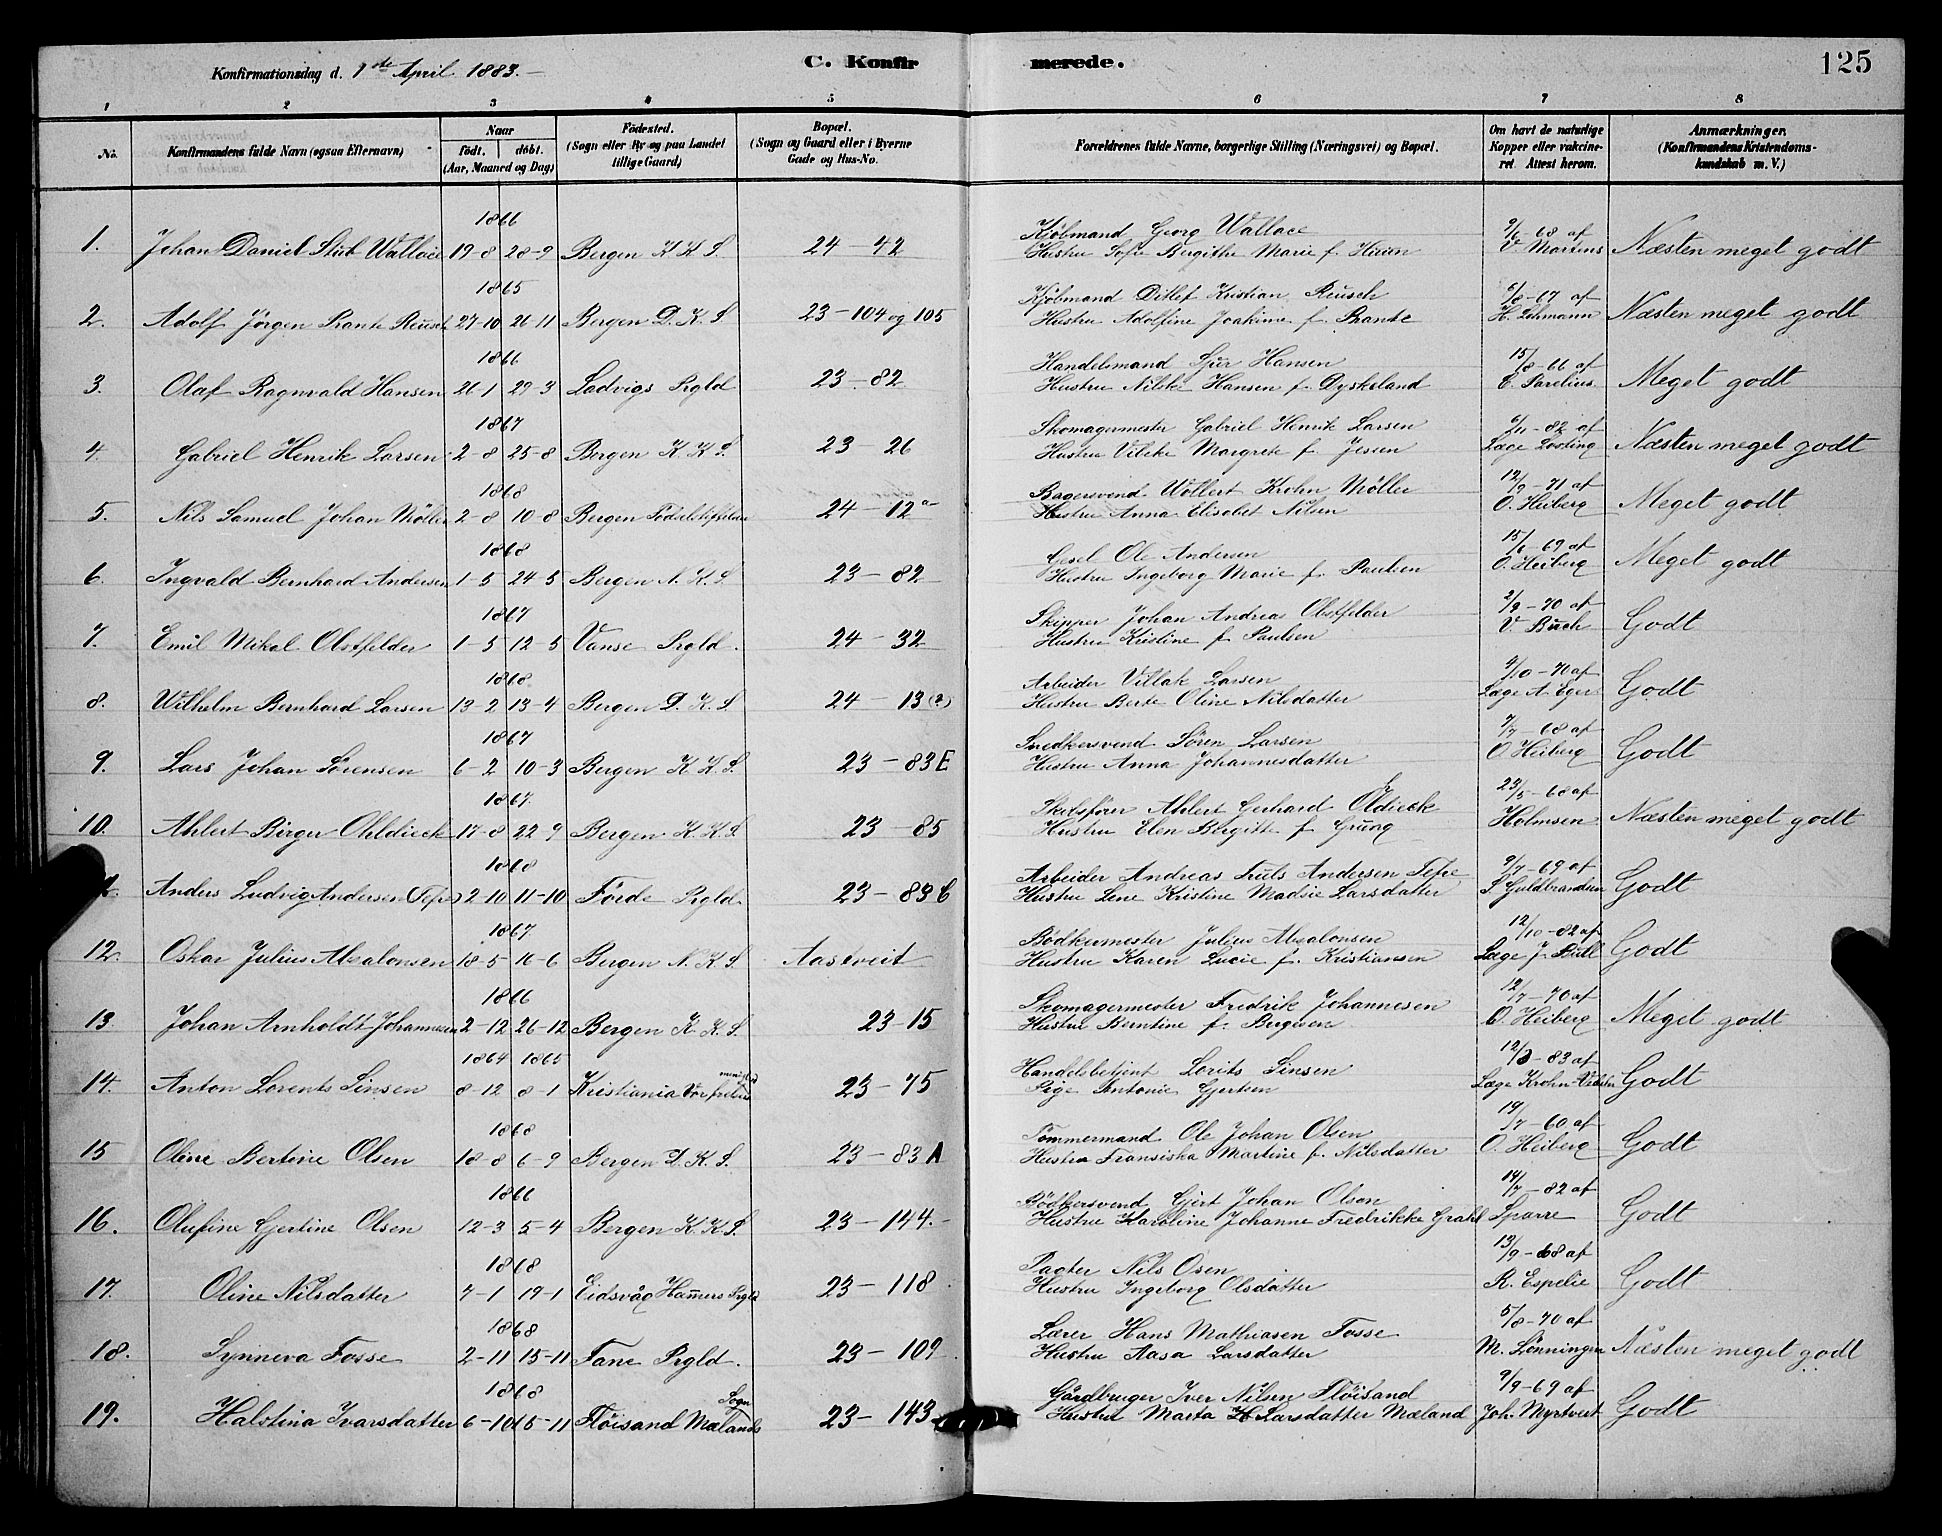 Konfirmationsdag d. 1ste April 1883.
C. Konfirmerede.
125
1 2 3 4 5 6 7 8
No.
Konfirmandens fulde Navn (ogsaa Efternavn)
Naar
født. døbt.
(Aar, Maaned og Dag)
Fødested.
(Sogn eller By og paa Landet
tillige Gaard)
Bopæl.
(Sogn og Gaard eller i Byerne
Gade og Hus-No.
Forældrenes fulde Navne, borgerlige Stilling (Næringsvei) og Bopæl.
Om havt de naturlige
Kopper eller vakcine-
ret. Attest herom.
Anmærkninger.
(Konfirmandens Kristendoms-
kundskab m. V.)
1866 Kjöbmand Georg Wallace 9/6 68 af
1. Johan Daniel Stub Wallace 19-8 28-9 Bergen K K S. 24 - 42 Hustru Sofie Bergithe Marie f. V. Martens Næsten meget godt
1865 Kjöbmand Ditlef Kristian Reusch 6/8-67 af
2. Adolf Jörgen Prante Reusch 27-10 26-11 Bergen D. K. S. 23-104 og 105 Hustru Adolfine Joakime f. Prante H. Lehmann Næsten meget godt
1866 Handelsmand Sjur Hansen 15/8-66 af
3. Olaf Ragnvald Hansen 26-1 29-3 Ladvigs Prgld 23-82 Hustru Hansen f. Dyskeland E. Parelius Meget godt
1867 Skomagermester Gabriel Henrik Larsen 6/11-82 af
4. Gabriel Henrik Larsen 2-8 25-8 Bergen K. K. S. 23-26 Hustru Vibeke Margrete f. Jessen Læge Losting Næsten meget godt
1868 Bagersvend Wollert Krohn Möller 12/9-71 af
5. Nils Samuel Johan Möller 2-8 10-8 Bergen 24-12a Hustru Anna Elisabet Nilsen O. Heiberg Meget godt
1868 Gesel Ole Andersen 15/6-69 af
6. Ingvald Bernhard Andersen 1-5 24-5 Bergen N. K. S. 23-82 Hustru Ingeborg Marie f. Paulsen O. Heiberg Meget godt
1867 Skipper Johan Andreas Obstfelder 2/9-70 af
7. Emil Mikal Obstfelder 1-5 12-5 Vanse Prgld. 24-32 Hustru Kristine f. Paulsen V. Buch Godt
1868 Arbeider Larsen 9/10-70 af
8. Wilhelm Bernhard Larsen 13-2 13-4 Bergen D. K. S. 24-13(a) Hustru Berte Oline Nilsdatter Læge A. Eger Godt
1867 Snedkersvend Sören Larsen 9/7-68 af
9. Lars Johan Sörensen 6-2 10-3 Bergen K. K. S. 23-83E Hustru Anna Johannesdatter O. Heiberg Godt
1867 Skibsförer Ahlert Gerhard Oldieck 23/5-68 af
10. Ahlert Birger Ohldieck 17-8 22-9 Bergen K. K. S. 23-85 Hustru Elen Bergitte f. Grung Holmsen Næsten meget godt
1868 Arbeider Andreas Andersen Tepe 9/7-69 af
Anders Ludvig Andersen (Tepe) 2-10 11-10 Förde Prgld. 23-83 Hustru Lene Kristine Madsie Larsdatter Guldbrandsen Godt
1867 Bödkermester Julius Absalonsen 12/10-82 af
12. Oskar Julius Absalonsen 18-5 16-6 Bergen N. K. S. Aastveit Hustru Karen Lucie f. Kristiansen Læge J. Bull Godt
1866 Skomagermester Fredrik Johannesen 12/7-70 af
13. Johan Arnholdt Johannesen 2-12 26-12 Bergen K. K. S. 23-15 Hustru Berntine f. Bergesen O. Heiberg Meget godt
1864 1865 Handelsbetjent Lorits Sinsen 12/3-83 af
14. Anton Lorents Sinsen 8-12 8-1 Kristiania Vor frelsers menighed 23-75 Pige Antonie Gjertsen Læge Krohn Godt
1868 Tömmermand Ole Johan Olsen 19/7-60 af
15 Oline Bertine Olsen 18-8 6-9 Bergen D. K. S. 23-83A Hustru Fransiska Martine f. Nilsdatter O. Heiberg Godt
1866 Bödkersvend Gjert Johan Olsen 14/7-82 af
16. Olufine Gjertine Olsen 12-3 5-4 Bergen K. K. S. 23-144.- Hustru Karoline Johanne Fredrikke Grahl Sparre Godt
1868 Pagter Nils Osen 13/9-68 af
17. Oline Nilsdatter 7-1 19-1 Eidsvåg Hamers Prgld 23-118 Hustru Ingeborg Olsdatter R. Espelie Godt
1868 Lærer Hans Mathiasen Fosse 5/8-70 af
18. Synneva Fosse 2-11 15-11 Fane Prgld. 23-109 Hustru Aasa Larsdatter M. Lönningen Næsten meget godt
1868 Gårdbruger Iver Nilsen Flöisand 9/9-69 af
19. Halstina Ivarsdatter 6-10 15-11 Flöisand Mælands Sogn 23-143 Hustru Marta H Larsdatter Mæland Joh. Myrtvert Godt